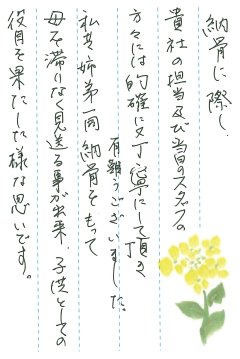 納骨に際し、
貴社の担当及び当日のスタッフの
方々には的確に又丁寧にして頂き
有難うございました。
私共姉弟一同納骨をもって
母を滞りなく見送る事が出来、子供としての
役目を果たした様な思いです。